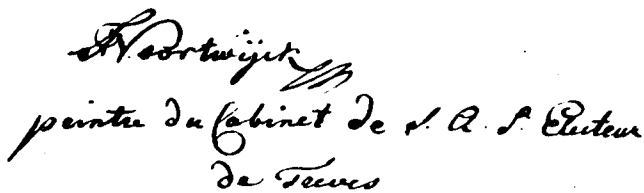 A Noortwijck
peintre du Cabinet de S. A. S. Electeur
de Treves